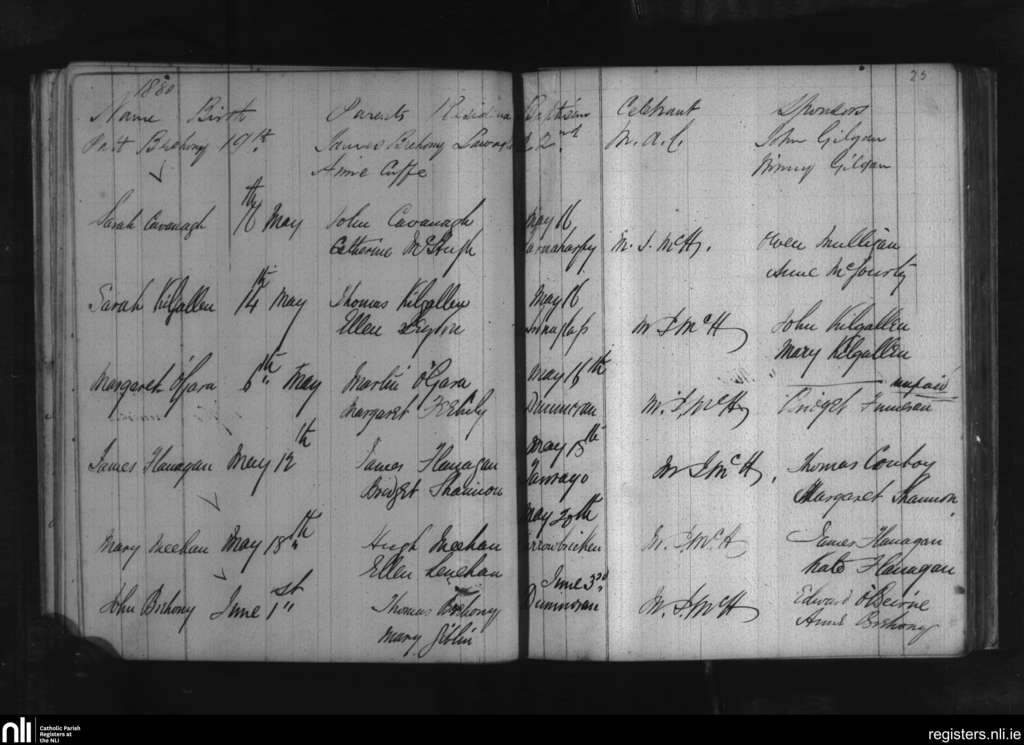 1880
25
Name Birth Parents Residence Baptism Celebrant Sponsors
Patt Brehony 19th. James Brehony 22nd. M. A. C. John Gilgan
Annie Cuffe Winny Gilgan
Sarah Cavanagh 16th May John Cavanagh May 16
Catherine McHugh M. J. McH. Owen Mulligan
Anne McGourty
Sarah Kilgallen 14th May Thomas Kilgallen May 16
Ellen M J McH John Kilgallen
Mary Kilgallen
Margaret O'Gara 6th May Martin O'Gara May 16th unpaid
Margaret Feehily M. J. McH Bridget
James Flanagan May 12th James Flanagan May 15th
Bridget Shannon Tawrago M J McH. Thomas Conboy
Margaret Shannon
May 20th
Mary Meehan May 18th Hugh Meehan M. J McH James Flanagan
Ellen Lenehan Kate Flanagan
June 3rd
John Brehony June 1st Thomas Brehony M. J. McH Edward O'Beirne
Mary Giblin Anne Brehony
nli Catholic Parish
Registers at
the NLI
registers.nli.ie